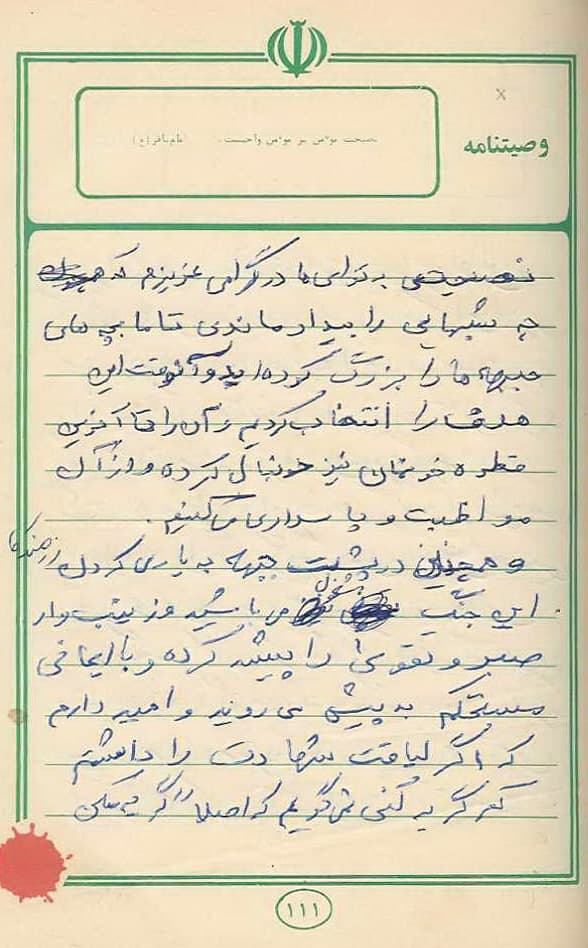 وصیتنامه
نصیحت مؤمن بر مؤمن واجبست. امام باقر (ع)
نصیحتی به توای مادر گرامی عزیزم که
چه شبهایی را بیدار ماندی تا ما بچه های
جبهه ما را بزرگ کرده اید و آنوقت این
هدف را انتخاب کردیم و آن را تا آخرین
قطره خونمان نیز دنبال کرده و از آن
مواظبت و پاسداری می کنیم.
و همچنین در پشت جبهه به یاری کردن رزمندگان
این جنگ مشغول می باشید و زینب وار
صبر و تقوی را پیشه کرده و با ایمانی
مستحکم به پیش می روید و امید دارم
که اگر لیاقت شهادت را داشتم
که گریه کنی نمی گویم که اصلا گریه نکنی
۱۱۱